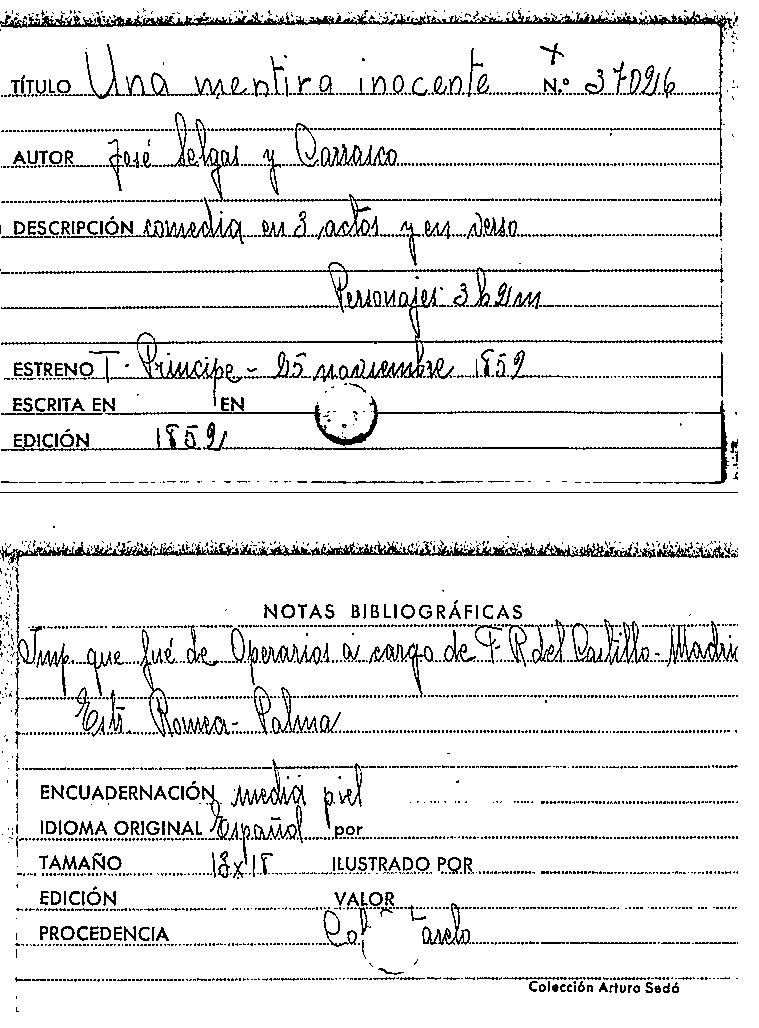 TÍTULO Una mentira inocente N.º 37026
AUTOR José Selgas y Carrasco
DESCRIPCIÓN comedia en 3 actos y en verso
Personajes 3 h 2 m
ESTRENO T. Principe - 25 noviembre 1859
ESCRITA EN EN
EDICIÓN 1859
NOTAS BIBLIOGRÁFICAS
Imp que fué de Operarios a cargo de F. R. del Castillo - Madri
Estr. Romea - Palma
ENCUADERNACIÓN media piel
IDIOMA ORIGINAL Español por
TAMAÑO 13x18 ILUSTRADO POR
EDICIÓN VALOR
PROCEDENCIA Col
Colección Arturo Sedó